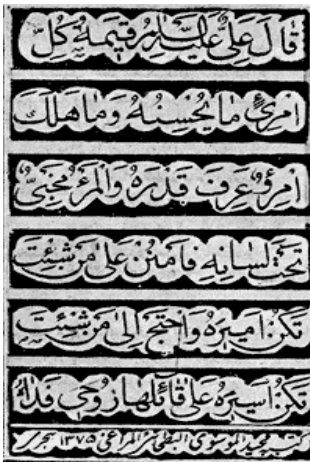 قَالَ عَلِيٌّ عَلَيْهِ السَّلَامُ قِيمَةُ كُلِّ
امْرِئٍ مَا يُحْسِنُهُ وَمَا هَلَكَ
امْرُؤٌ عَرَفَ قَدْرَهُ وَالْمَرْءُ مَخْبِيٌّ
تَحْتَ لِسَانِهِ فَامْنُنْ عَلَى مَنْ شِئْتَ
تَكُنْ أَمِيرَهُ وَاحْتَجْ إِلَى مَنْ شِئْتَ
تَكُنْ أَسِيرَهُ عَلَى قَائِلِهَا رُوحِي فِدَاهُ
كتبه الموسوي ١٣٧٥